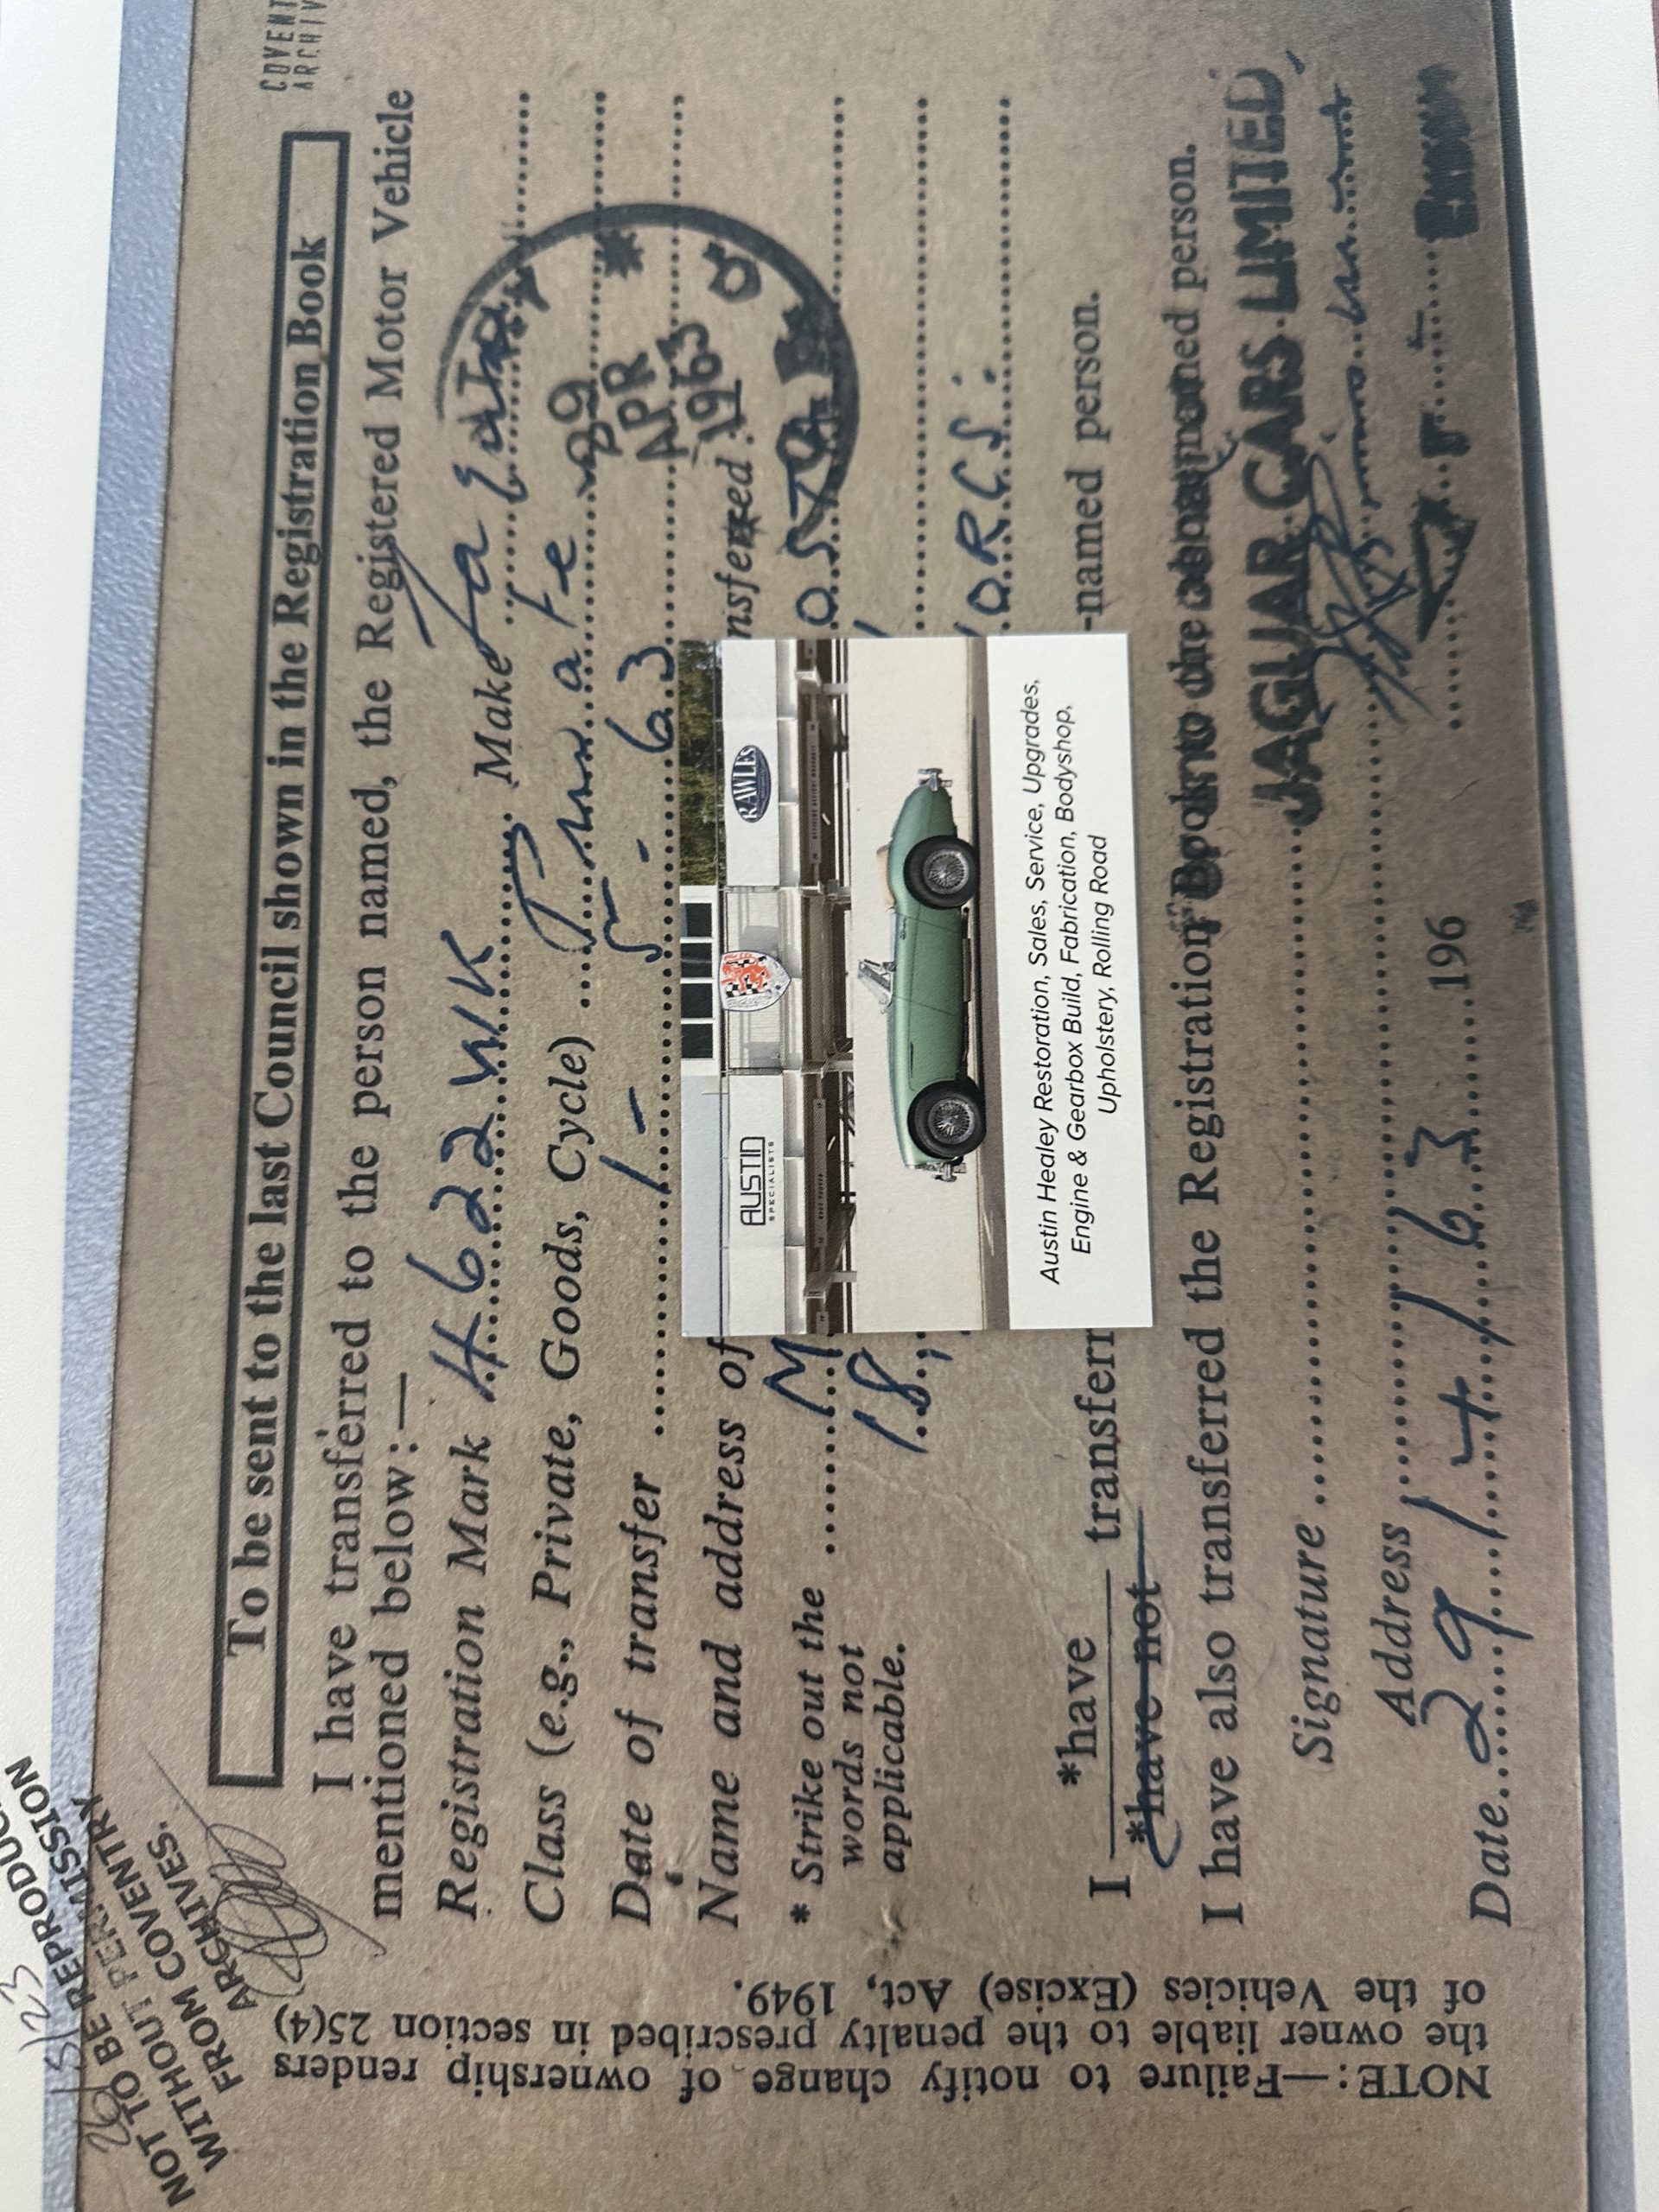 COVENT
ARCHIV
26/5/23
NOT TO BE REPRODUC
WITHOUT PERMISSION
FROM COVENTRY
ARCHIVES.
To be sent to the last Council shown in the Registration Book
I have transferred to the person named, the Registered Motor Vehicle
mentioned below:—
Registration Mark 4622WK Make Jaguar
Class (e.g., Private, Goods, Cycle) Private
29
APR
1963
Date of transfer 1 - 5 - 63
Name and address of nsferred :—
M
18,
ORCS.
* Strike out the
words not
applicable.
I *have transferr -named person.
*have not
I have also transferred the Registration Book to the above named person.
JAGUAR CARS LIMITED,
Signature
Address
Date 29/4/63 196
NOTE:—Failure to notify change of ownership renders
the owner liable to the penalty prescribed in section 25(4)
of the Vehicles (Excise) Act, 1949.
AUSTIN
SPECIALISTS
RAWLES
Austin Healey Restoration, Sales, Service, Upgrades,
Engine & Gearbox Build, Fabrication, Bodyshop,
Upholstery, Rolling Road